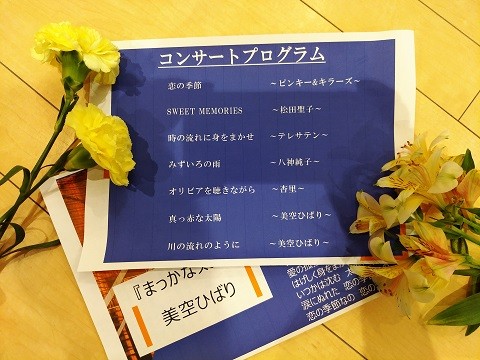 コンサートプログラム
恋の季節 ～ピンキー&キラーズ～
SWEET MEMORIES ～松田聖子～
時の流れに身をまかせ ～テレサテン～
みずいろの雨 ～八神純子～
オリビアを聴きながら ～杏里～
真っ赤な太陽 ～美空ひばり～
川の流れのように ～美空ひばり～
『まっかな太
美空ひばり
はげしく身をまか
いつかは沈む 太
涙にぬれた 恋の
恋の季節なの 恋の